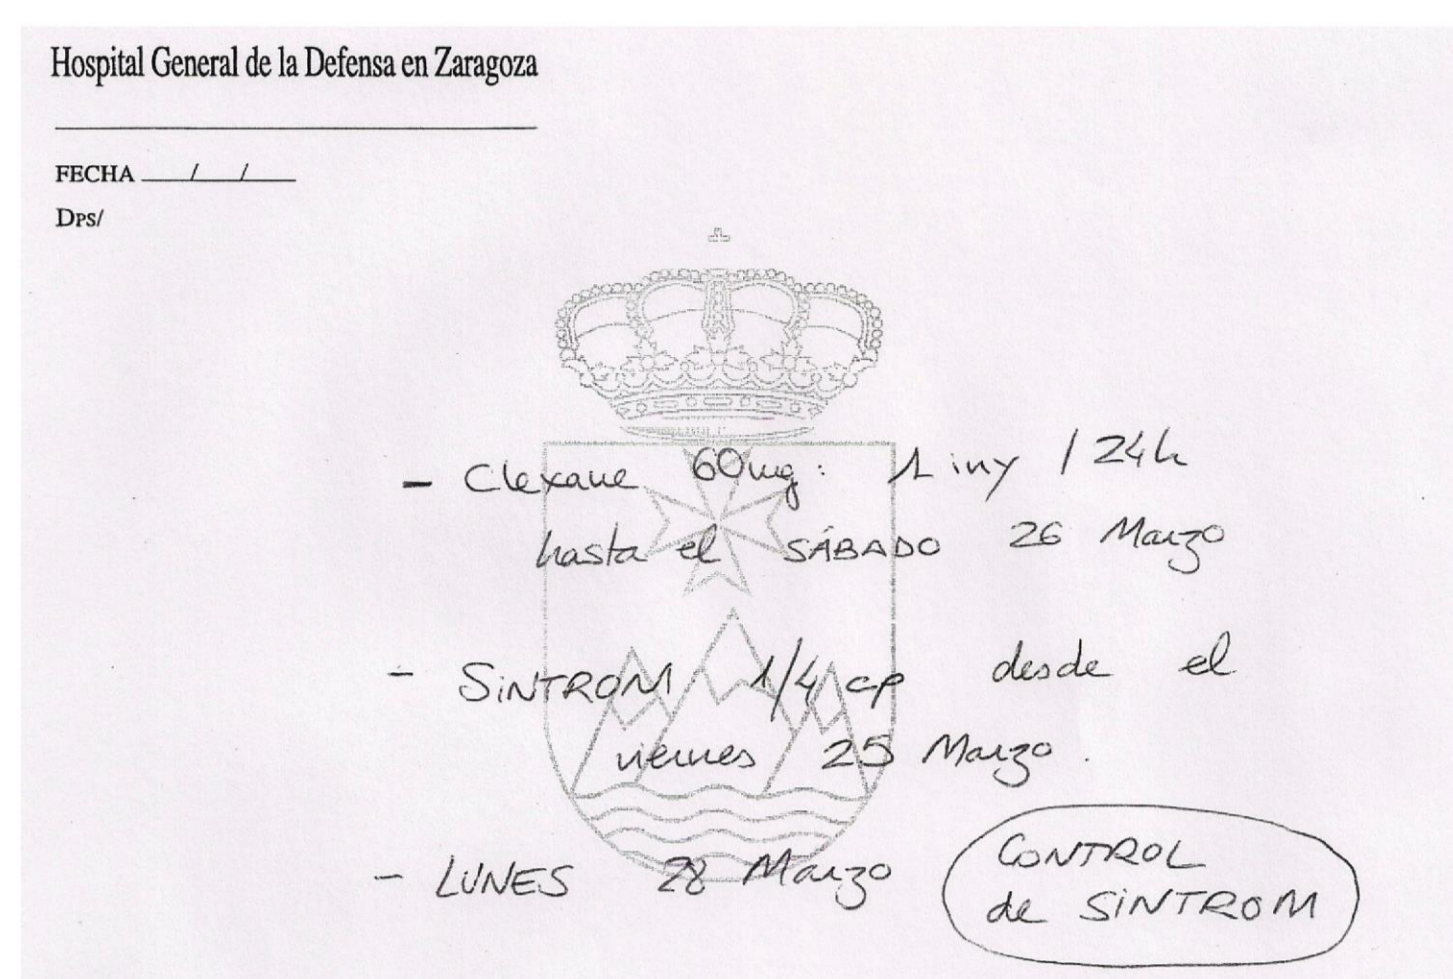 Hospital General de la Defensa en Zaragoza
FECHA ___/___/___
DPS/
- Clexane 60mg: 1 iny / 24h
hasta el SÁBADO 26 Marzo
- SiNTROM 1/4 cp desde el
viernes 25 Marzo.
- LUNES 28 Marzo
CONTROL
de SiNTROM